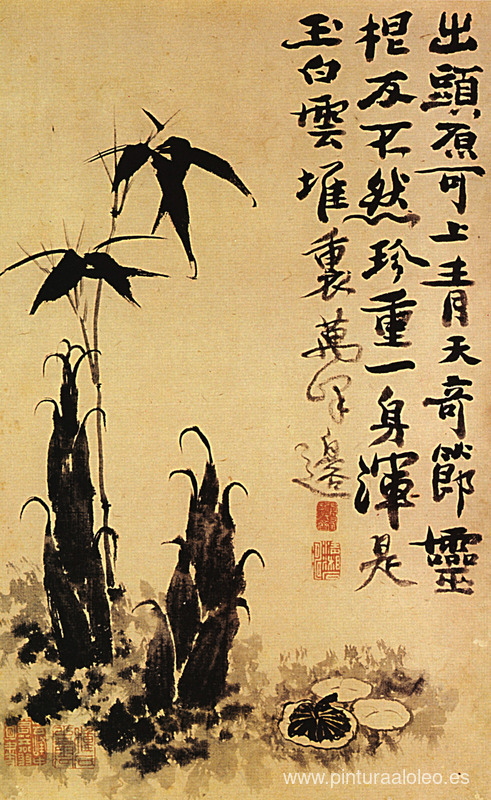 出頭原可上青天奇節靈
根反不然珍重一身渾是
玉白雲堆裏萬峰邊
www.pinturaaloleo.es